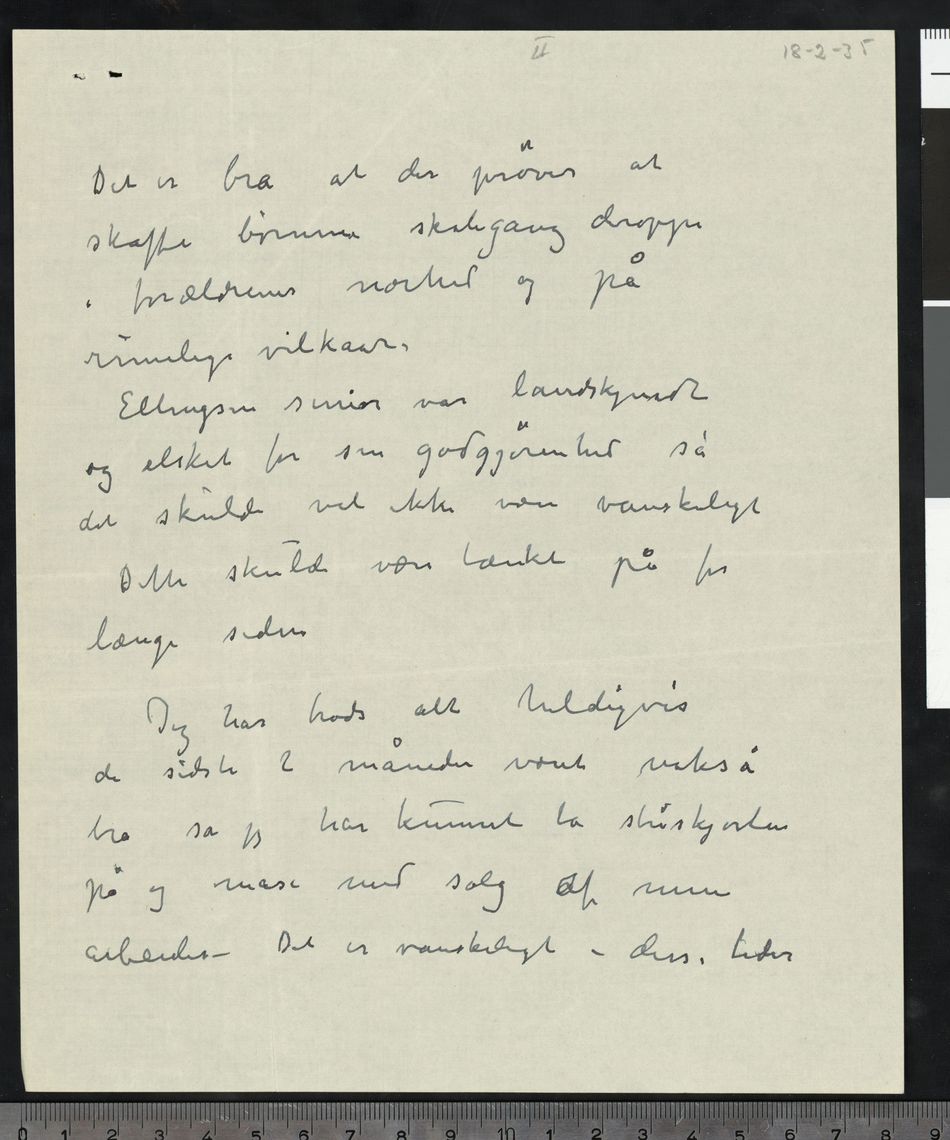 II
18-2-35
Det er bra at der prøves at
skaffe børnene skolegang deroppe
i forældrenes nærhed og på
rimelige vilkaar.
Ellingsen senior var landskjendt
og elsket for sin godgjørenhed så
det skulde vel ikke være vanskeligt
Dette skulde være tænkt på for
længe siden
Jeg har trods alt heldigvis
de sidste 2 måneder været nokså
bra så jeg har kunnet ta striskjorten
på og mase med salg af mine
arbeider – Det er vanskeligt – disse tider